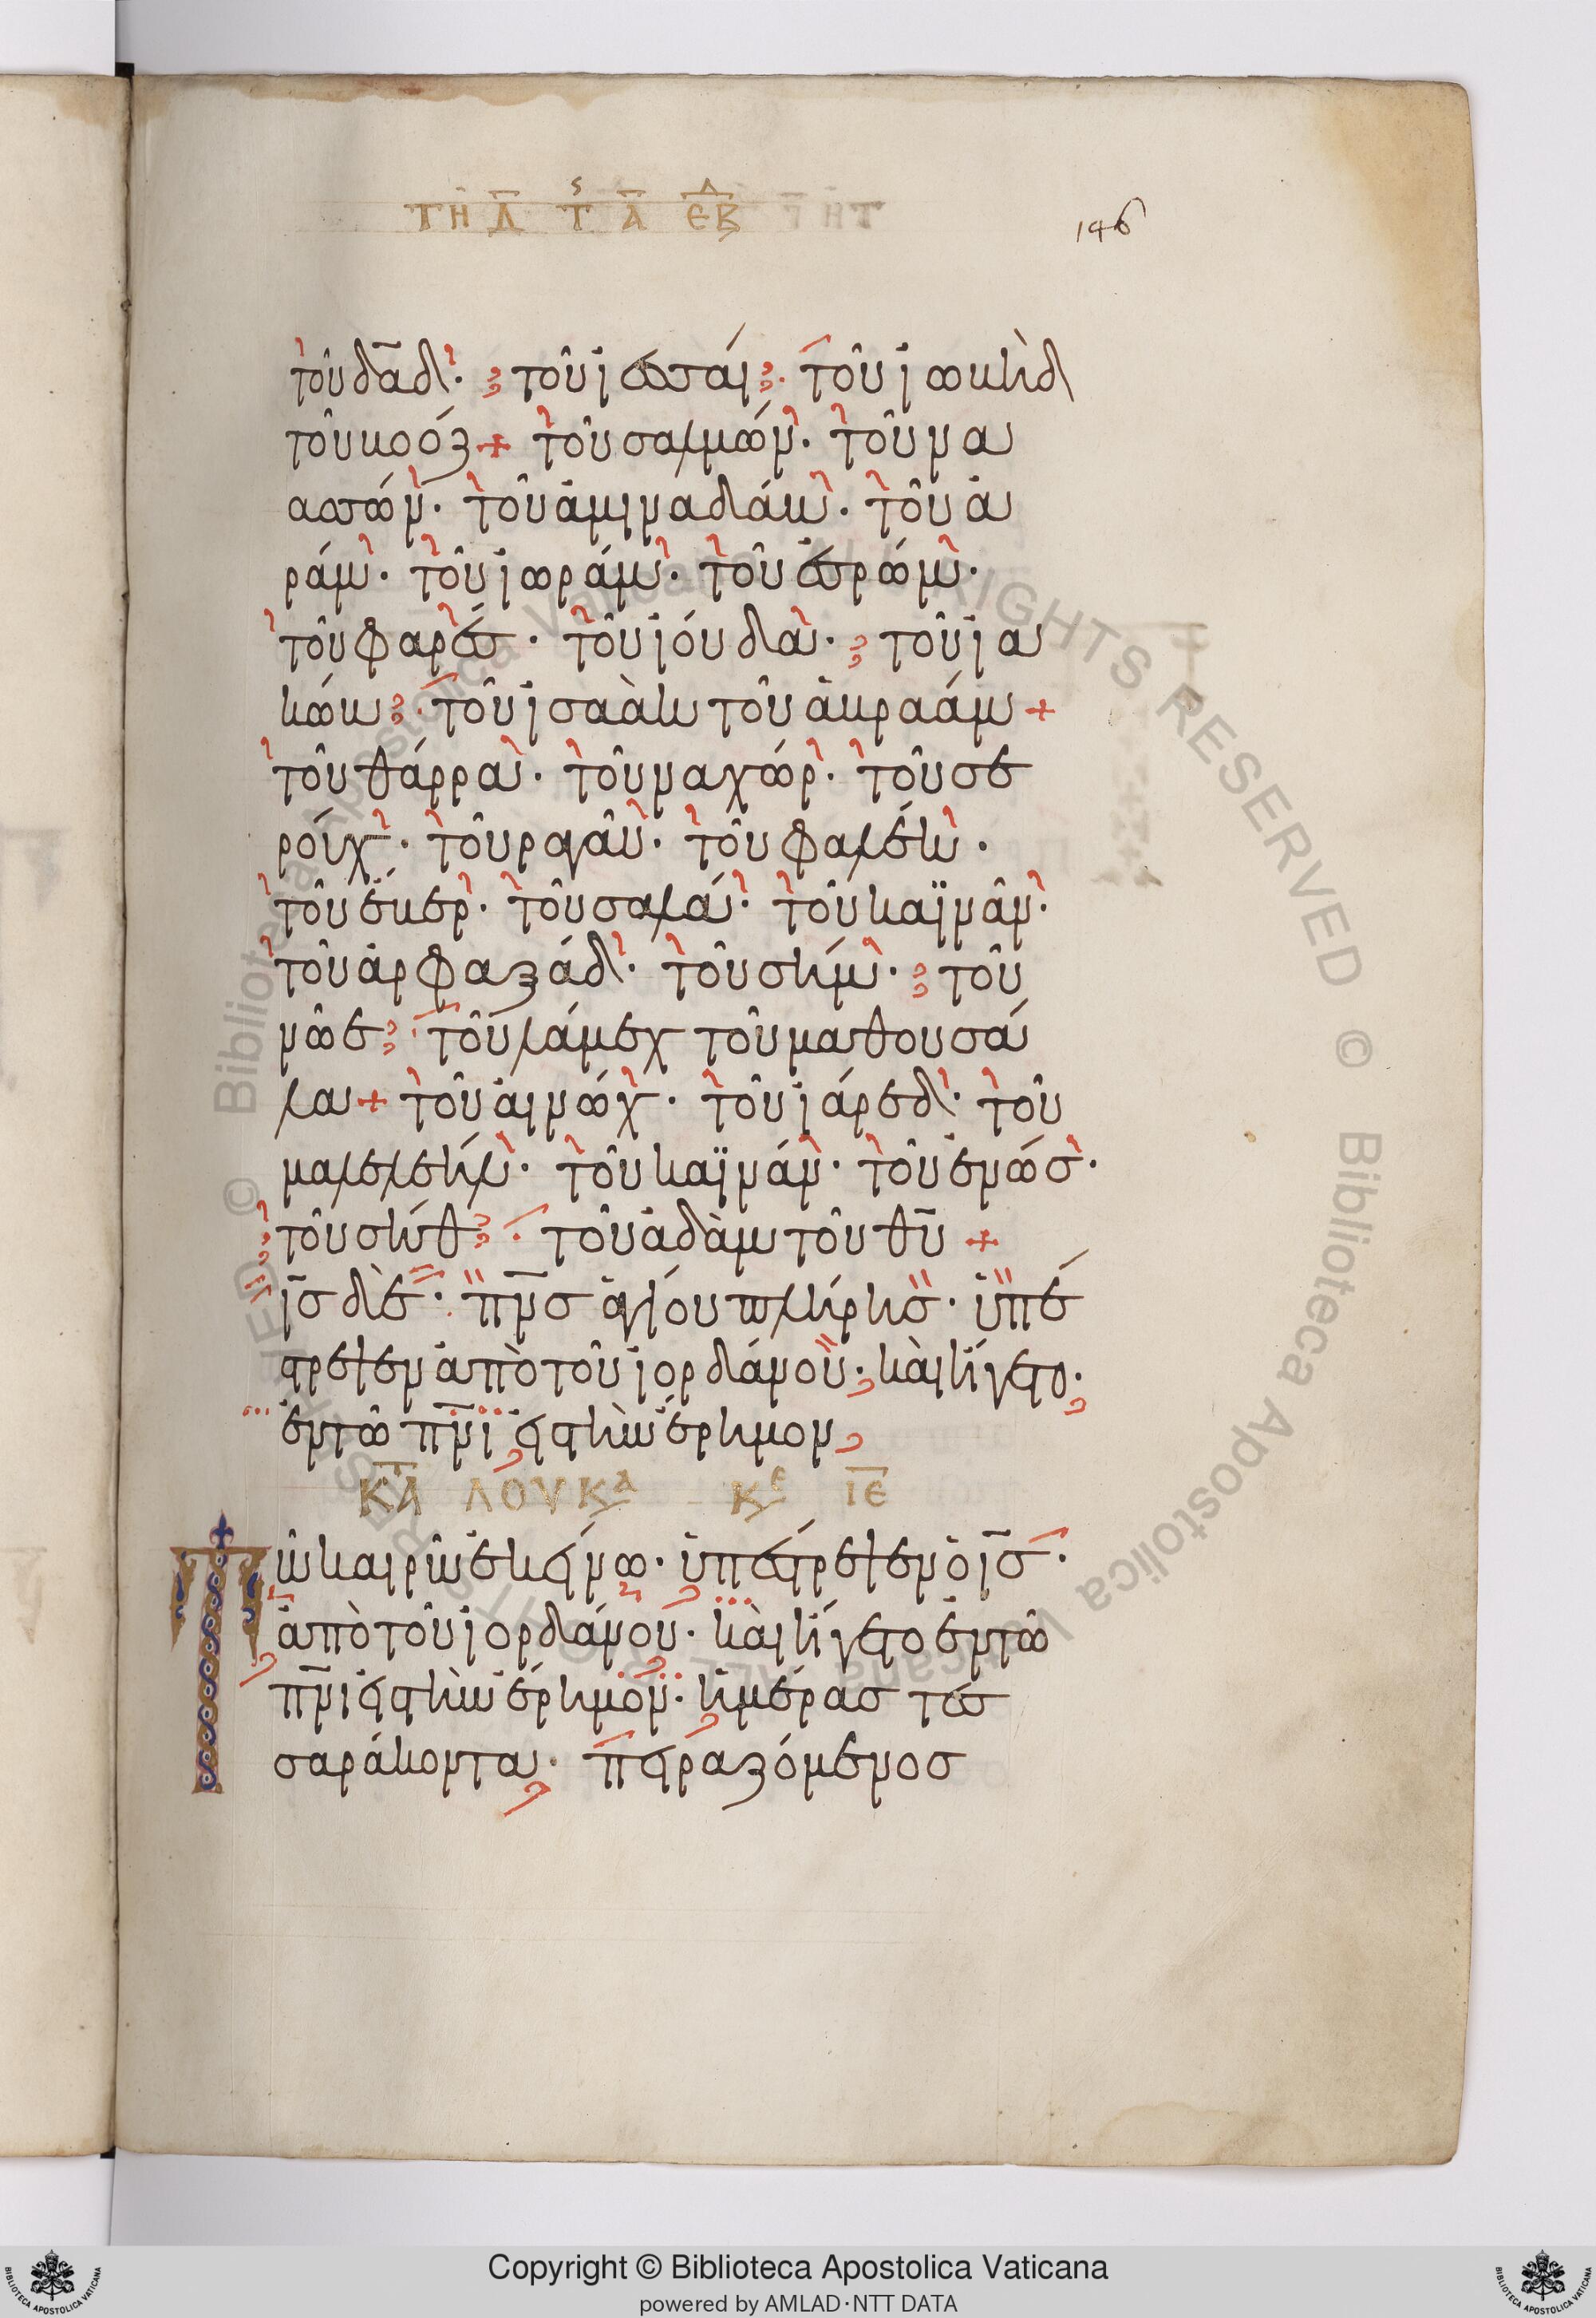 ΤΗ Δ Τς Α ΕΒΔ
146
τοῦ δᾱδ· τοῦ ἰεσσαί· τοῦ ἰωβὴδ
τοῦ βοόζ + τοῦ σαλμών· τοῦ να
ασσών· τοῦ ἀμιναδάβ· τοῦ ἀ
ράμ· τοῦ ἰωράμ· τοῦ ἐσρώμ·
τοῦ φαρές· τοῦ ἰούδα· τοῦ ἰα
κώβ· τοῦ ἰσαὰκ τοῦ ἀβραάμ +
τοῦ θάρρα· τοῦ ναχώρ· τοῦ σε
ρούχ· τοῦ ραγαῦ· τοῦ φαλέκ·
τοῦ ἔβερ· τοῦ σαλά· τοῦ καϊνᾶν·
τοῦ ἀρφαξάδ· τοῦ σήμ· τοῦ
νῶε· τοῦ λάμεχ τοῦ μαθουσά
λα + τοῦ αἰνώχ· τοῦ ἰάρεδ· τοῦ
μαλελεήλ· τοῦ καϊνάν· τοῦ ἐνώς·
τοῦ σήθ· τοῦ ἀδὰμ τοῦ θ̅υ̅ +
ἰ̅ς̅ δὲ· π̅ν̅ς̅ ἁγίου πλήρης· ὑπέ
στρεψεν ἀπὸ τοῦ ἰορδάνου· καὶ ἤγετο·
ἐν τῶ π̅ν̅ι̅ εἰς τὴν ἔρημον
ΚΑΤ ΛΟΥΚΑ ΚΕ ΙΕ
Τῶ καιρῶ ἐκείνω· ὑπέστρεψεν ὁ ἰ̅ς̅·
ἀπὸ τοῦ ἰορδάνου· καὶ ἤγετο ἐν τῶ
π̅ν̅ι̅ εἰς τὴν ἔρημον· ἡμέρας τεσ
σαράκοντα· πειραζόμενος
Copyright © Biblioteca Apostolica Vaticana
powered by AMLAD·NTT DATA